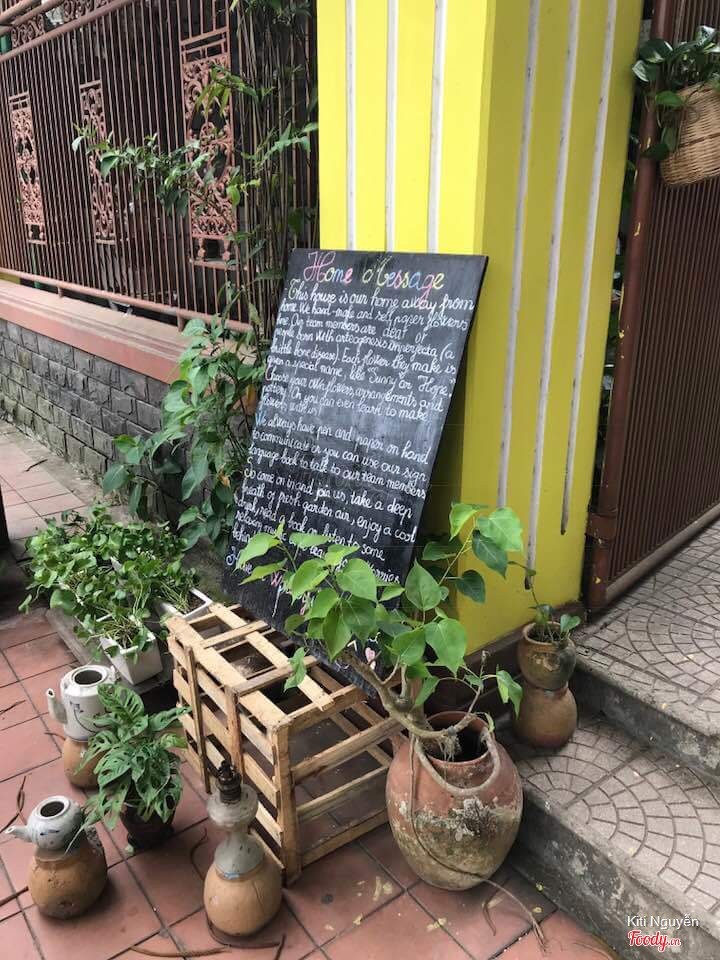 Home Message
This house is our home away from
home. We hand-make and sell paper flowers
here. Our team members are deaf or
people born with osteogenesis imperfecta (a
brittle bone disease). Each flower they make is
given a special name, like "Sunny" or "Hope."
Choose your own flowers, arrangements and
pottery! Or you can even learn to make
flowers with us!
We always have pen and paper on hand
to communicate or you can use our sign
language book to talk to our team members
So come on in and join us, take a deep
breath of fresh garden air, enjoy a cool
drink, read a book, listen to some
relaxing music
behind
Kiti Nguyễn
Foody.vn